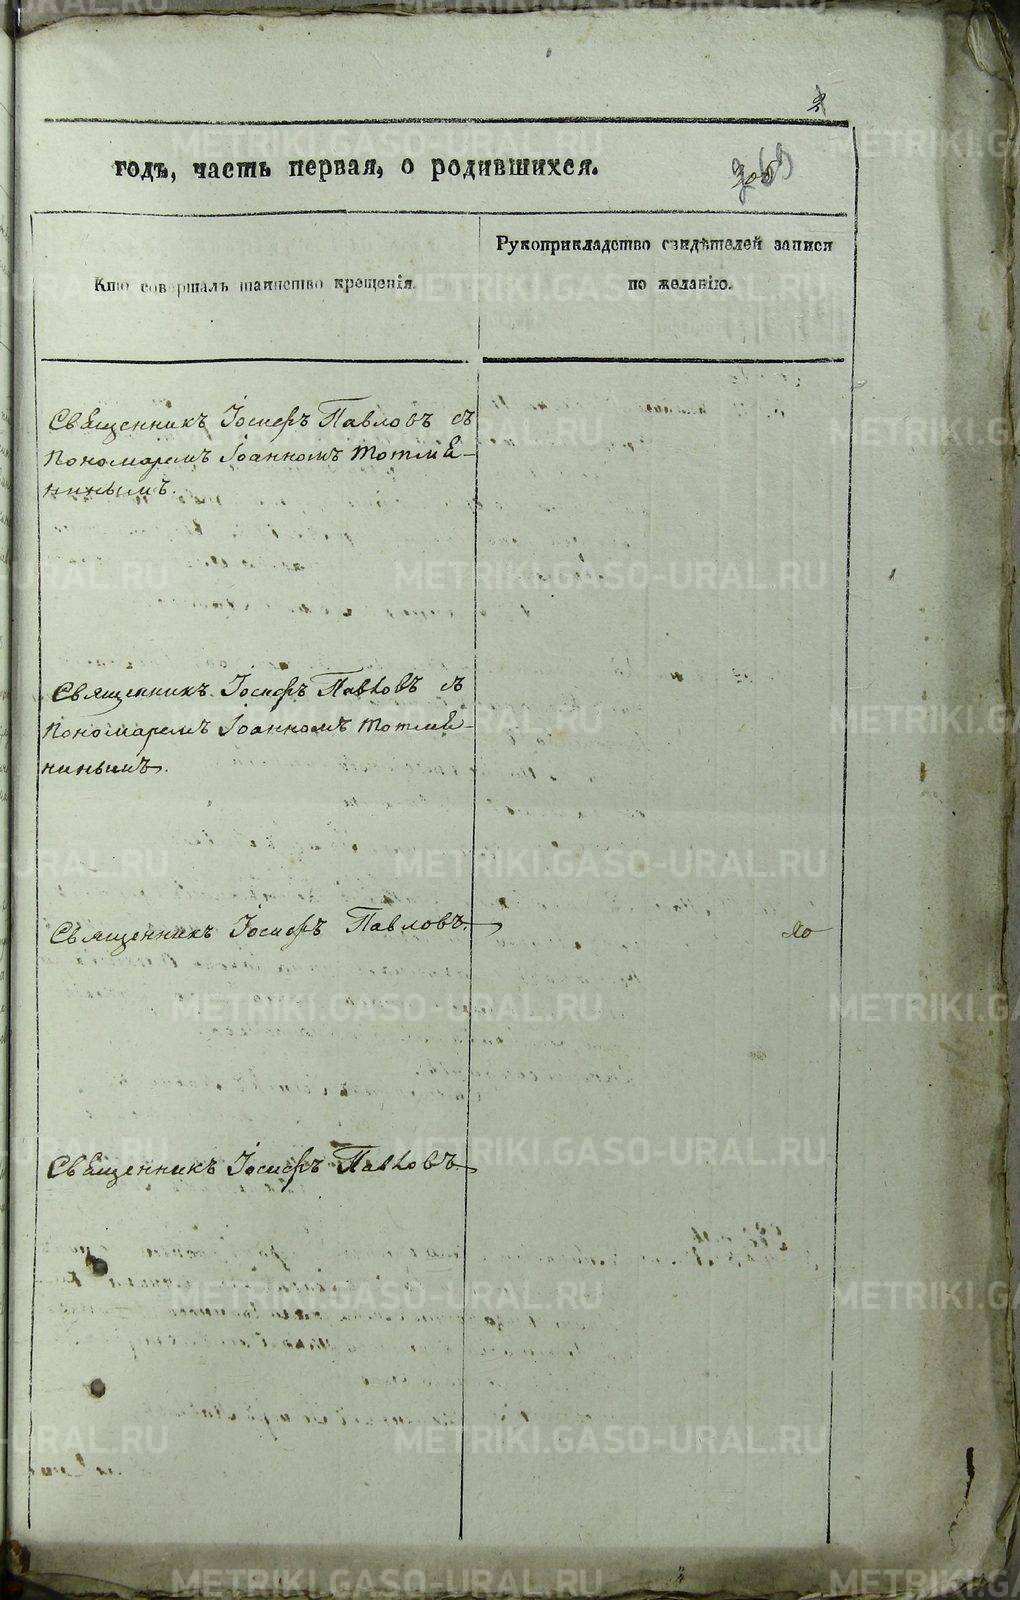 годъ, часть первая, о родившихся.
Кто совершалъ таинство крещенія.
Рукоприкладство свидѣтелей записи
по желанію.
Священникъ Іосифъ Павловъ съ
Пономаремъ Іоанномъ Тотмѣ-
нинымъ.
Священникъ Іосифъ Павловъ съ
Пономаремъ Іоанномъ Тотмѣ-
нинымъ.
Священникъ Іосифъ Павловъ.
Священникъ Іосифъ Павловъ
METRIKI.GASO-URAL.RU